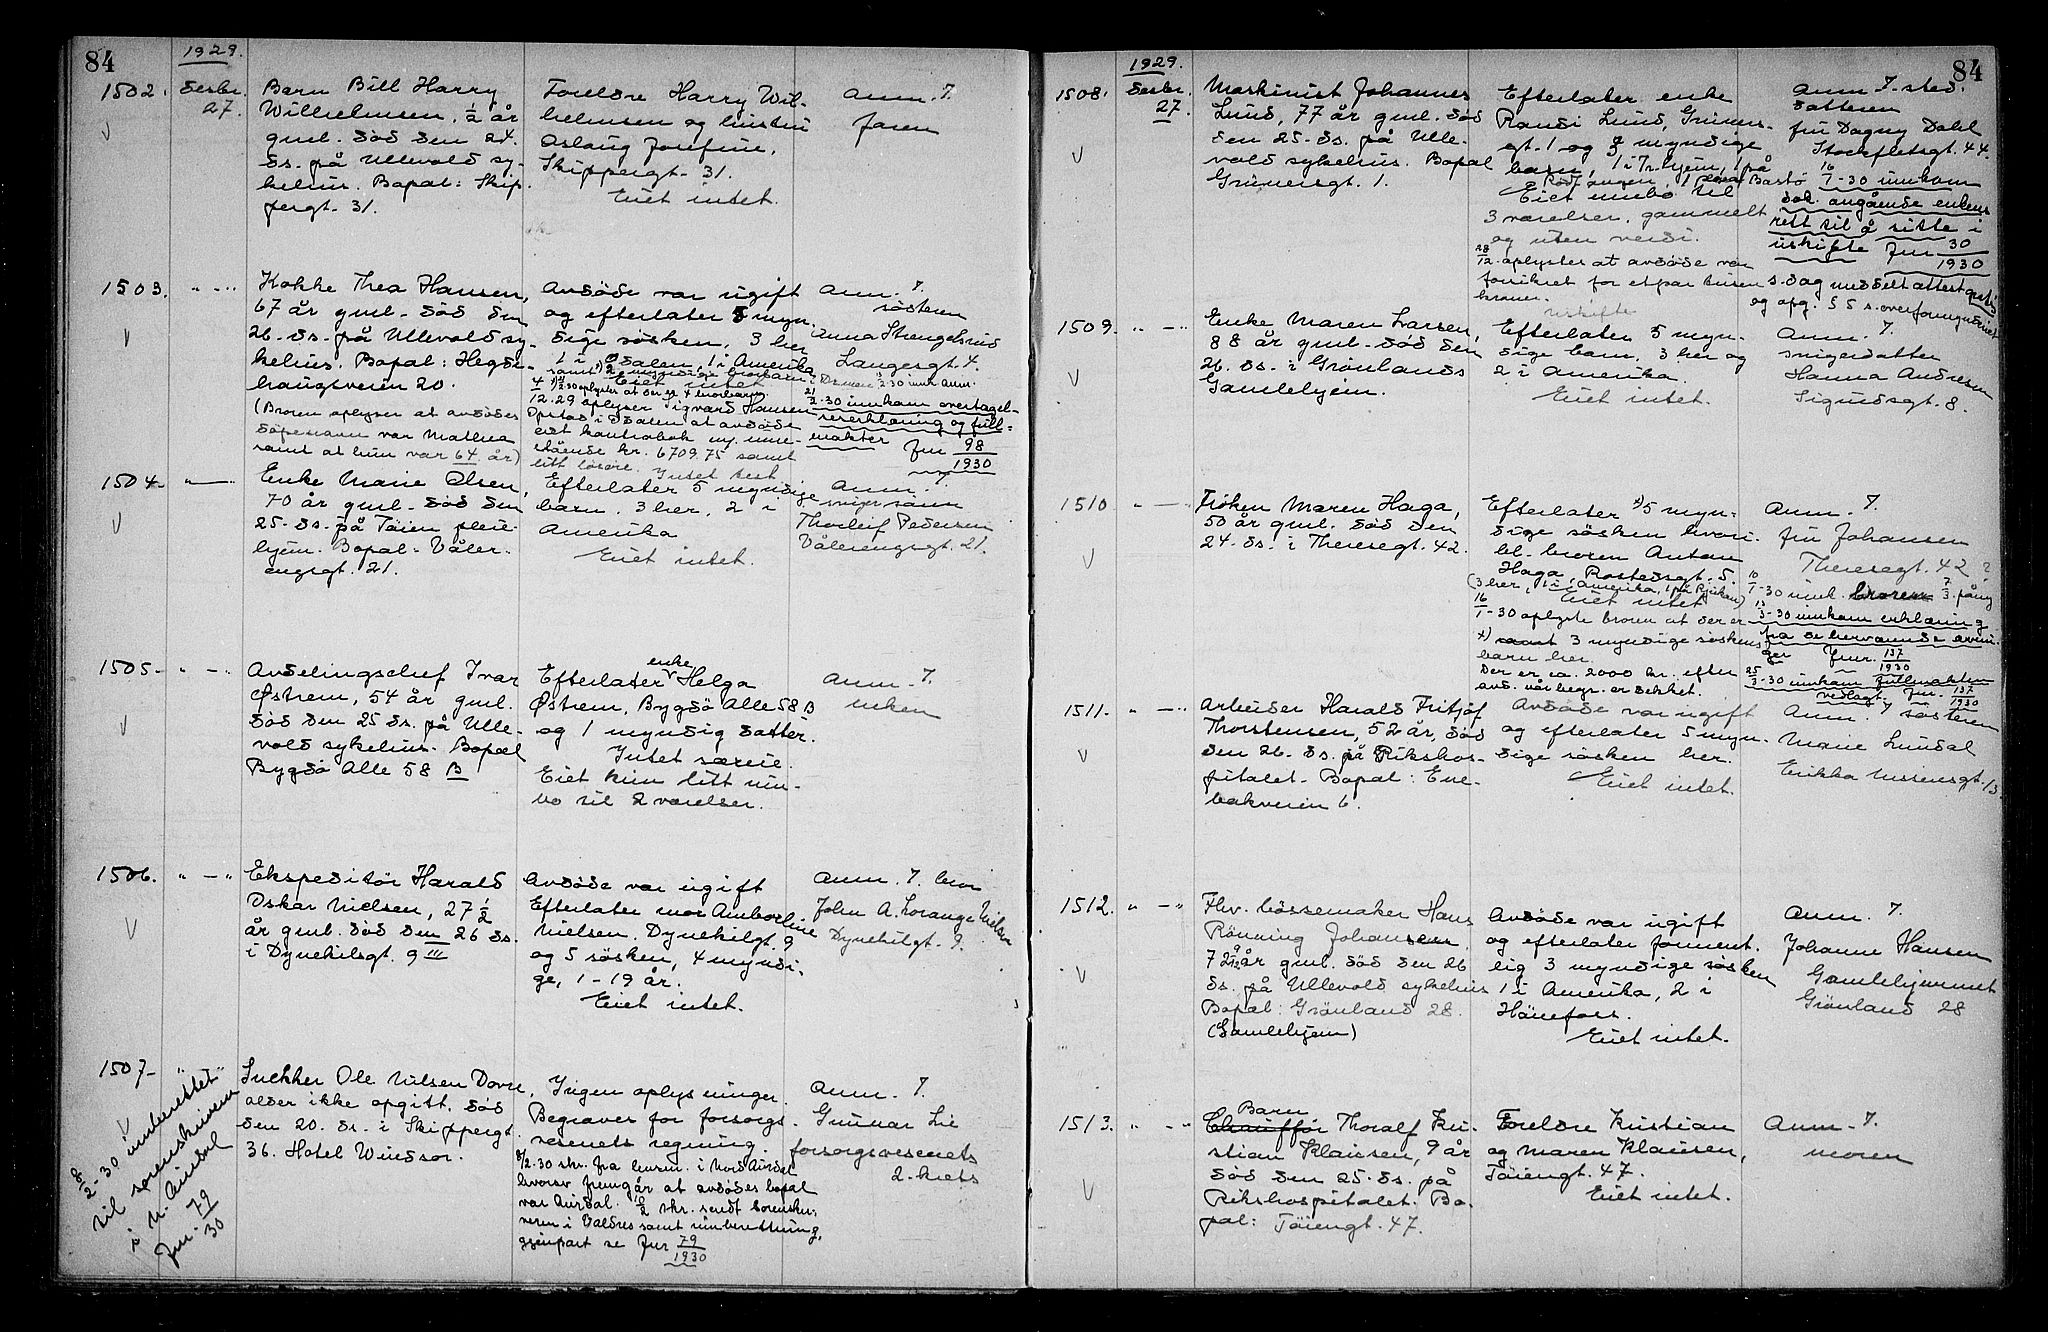 84
1929.
1502.
Desbr.
27.
Barn Bill Harry
Wilhelmsen, 1/2 år
gml. död den 24.
ds. på Ullevold sy-
kehus. Bopal: Skip-
pergt. 31.
Foreldre Harry Wil-
helmsen og hustru
Aslaug Josefine,
Skippergt. 31.
Eiet intet.
Anm. 7.
faren
1503.
" - "
Kokke Thea Hansen,
67 år gml. död den
26. ds. på Ullevold sy-
kehus. Bopal: Hegde-
haugsveien 20.
(Broren oplyser at avdödes
döpenavn var Mathea
samt at hun var 64 år)
Avdöde var ugift
og efterlater 5 myn-
dige sösken, 3 her
1 i Odalen, 1 i Amerika
Eiet intet
12.29 oplyser Sigvard Hansen
Opstad i Odalen at avdöde
eiet kontrabok
stående kr. 6709.75 samt
litt lösöre. Intet test.
Anm. 7.
sösteren
Anna Strengelsrud
Langesgt. 4.
2-30 innkom overtagel-
seserklæring og full-
makter Jnr 98/1930
1504.
" - "
Enke Marie Olsen,
70 år gml. död den
25. ds. på Töien pleie-
hjem. Bopal: Våler-
engsgt. 21.
Efterlater 5 myndige
barn. 3 her, 2 i
Amerika
Eiet intet.
Anm. 7.
svigersönn
Thorleif Pedersen
Vålerengsgt. 21.
1505.
" - "
Avdelingschef Ivar
Østrem, 54 år gml.
död den 25 ds. på Ulle-
vold sykehus. Bopæl
Bygdö Alle 58 B
enke
Efterlater Helga
Østrem, Bygdö Alle 58 B
og 1 myndig datter.
Intet særeie.
Eiet kun litt inn-
bo til 2 værelser.
Anm. 7.
enken
1506.
" - "
Ekspeditör Harald
Oskar Nielsen, 27 1/2
år gml. död den 26 ds.
i Dynekilsgt. 9 III
Avdöde var ugift
Efterlater mor
Nielsen, Dynekilgt. 9
og 5 sösken, 4 myndi-
ge, 1 - 19 år.
Eiet intet.
Anm. 7. bror
John A. Lorange Nielsen
Dynekilgt. 9.
1507.
"
8/2-30 innberettet
til sorenskriveren
i N. Aurdal
Jnr. 79/30
Snekker Ole Nilsen Dovre,
alder ikke opgitt, död
den 20. ds. i Skippergt.
36. Hotel Windsor.
Ingen oplysninger.
Begraves for forsorgs-
vesenets regning.
8/2.30 skr. fra lensm. i Nord Aurdal
hvorav fremgår at avdödes bopal
var Aurdal. 8/2 skr. sendt sorenskri-
veren i Valdres samt innberetning,
gjenpart se Jnr 79/1930
Anm. 7.
Gunnar Lie
forsorgsvesenets
2. krets
84
1929.
1508.
Desbr.
27.
Maskinist Johannes
Lund, 77 år gml. död
den 25. ds. på Ulle-
vold sykehus. Bopal
Grünersgt. 1.
Efterlater enke
Randi Lund, Grüners-
gt. 1 og 3 myndige
barn, 1 i Tr.hjem, 1 på
Eiet innbo til
3 værelser, gammelt
og uten verdi.
28/12 oplystes at avdöde var
forsikret for et par tusen
kroner.
uskifte
Anm. 7. sted-
datteren
fru Dagny Dahl
Stockfletsgt. 44.
16/1-30 innkom
dok. angående enkens
rett til å sitte i
uskifte Jnr 30/1930
s. dag meddelt attest
og opg. § 5 s. overformynderiet
1509.
" - "
Enke Maren Larsen,
88 år gml. död den
26. ds. i Grönlands
Gamlehjem.
Efterlater 5 myn-
dige barn, 3 her og
2 i Amerika.
Eiet intet.
Anm. 7.
svigerdatter
Hanna Andresen
Sigurdsgt. 8.
1510
" - "
Fröken Maren Haga,
50 år gml. död den
24. ds. i Theresegt. 42.
Efterlater x) 5 myn-
dige sösken hvori-
bl. broren Anton
Haga, Rostedsgt. 5.
(3 her, 1 i Amerika, 1 på Rjukan)
Eiet intet
16/1-30 oplyste broren at der er
x) samt 3 myndige söskens
barn her.
Der er ca. 2000 kr. efter
avd. når begr. er dekket.
Anm. 7.
fru Johansen
Theresegt. 42 ?
10/1-30 innk. broren 7/3. påny
13/3-30 innkom erklæring
fra de herværende arvin-
ger Jnr. 137/1930
25/3-30 innkom fullmakten
vedlagt Jnr. 137/1930
1511.
" - "
Arbeider Harald Fritjof
Thorstensen, 52 år, död
den 26. ds. på Rikshos-
pitalet. Bopal: Ene-
bakveien 6.
Avdöde var ugift
og efterlater 5 myn-
dige sösken her.
Eiet intet.
Anm. 7 sösteren
Marie Lundal
Erikka Nissensgt. 13.
1512.
" - "
Fhv. bössemaker Hans
Rönning Johansen,
72 år gml. död den 26
ds. på Ullevold sykehus
Bopal: Grönland 28.
(Gamlehjem)
Avdöde var ugift
og efterlater forment-
lig 3 myndige sösken
1 i Amerika, 2 i
Hönefoss.
Eiet intet.
Anm. 7.
Johanne Hansen
Gamlehjemmet
Grönland 28
1513.
" - "
Barn
Chaufför Thoralf Kri-
stian Klausen, 9 år
död den 25. ds. på
Rikshospitalet. Bo-
pal: Töiengt. 47.
Foreldre Kristian
og Maren Klausen,
Töiengt. 47.
Eiet intet.
Anm. 7.
moren